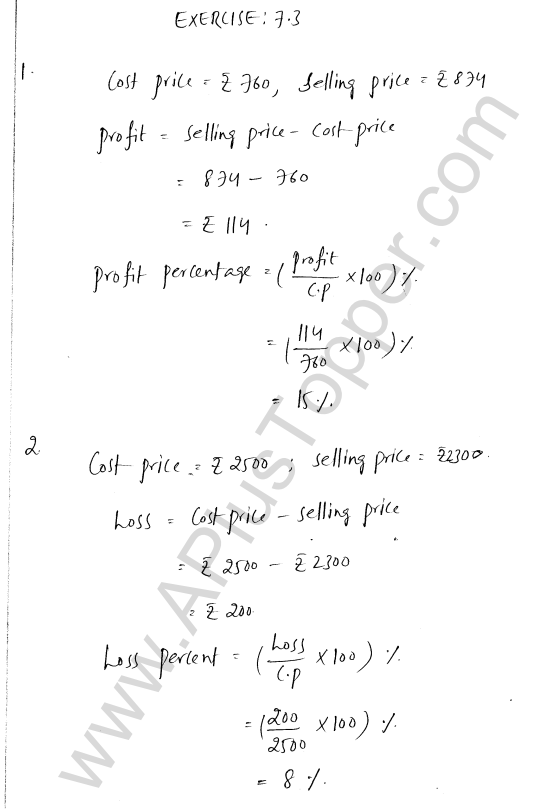 EXERCISE: 7.3
1. Cost price = ₹ 760, Selling price = ₹ 874
Profit = Selling price - Cost price
= 874 - 760
= ₹ 114.
Profit percentage = (Profit/C.P × 100) %
= (114/760 × 100) %
= 15 %.
2 Cost price = ₹ 2500 ; Selling price = ₹2300.
Loss = Cost price - selling price
= ₹ 2500 - ₹ 2300
= ₹ 200.
Loss percent = (Loss/C.P × 100) %.
= (200/2500 × 100) %
= 8 %.
www.APlusTopper.com